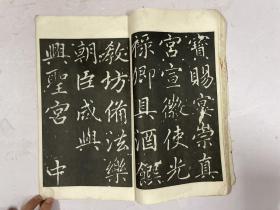 寳賜宴崇真
宮宣徽使光
祿卿具酒饌
教坊備法樂
朝臣咸與
興聖宮 中